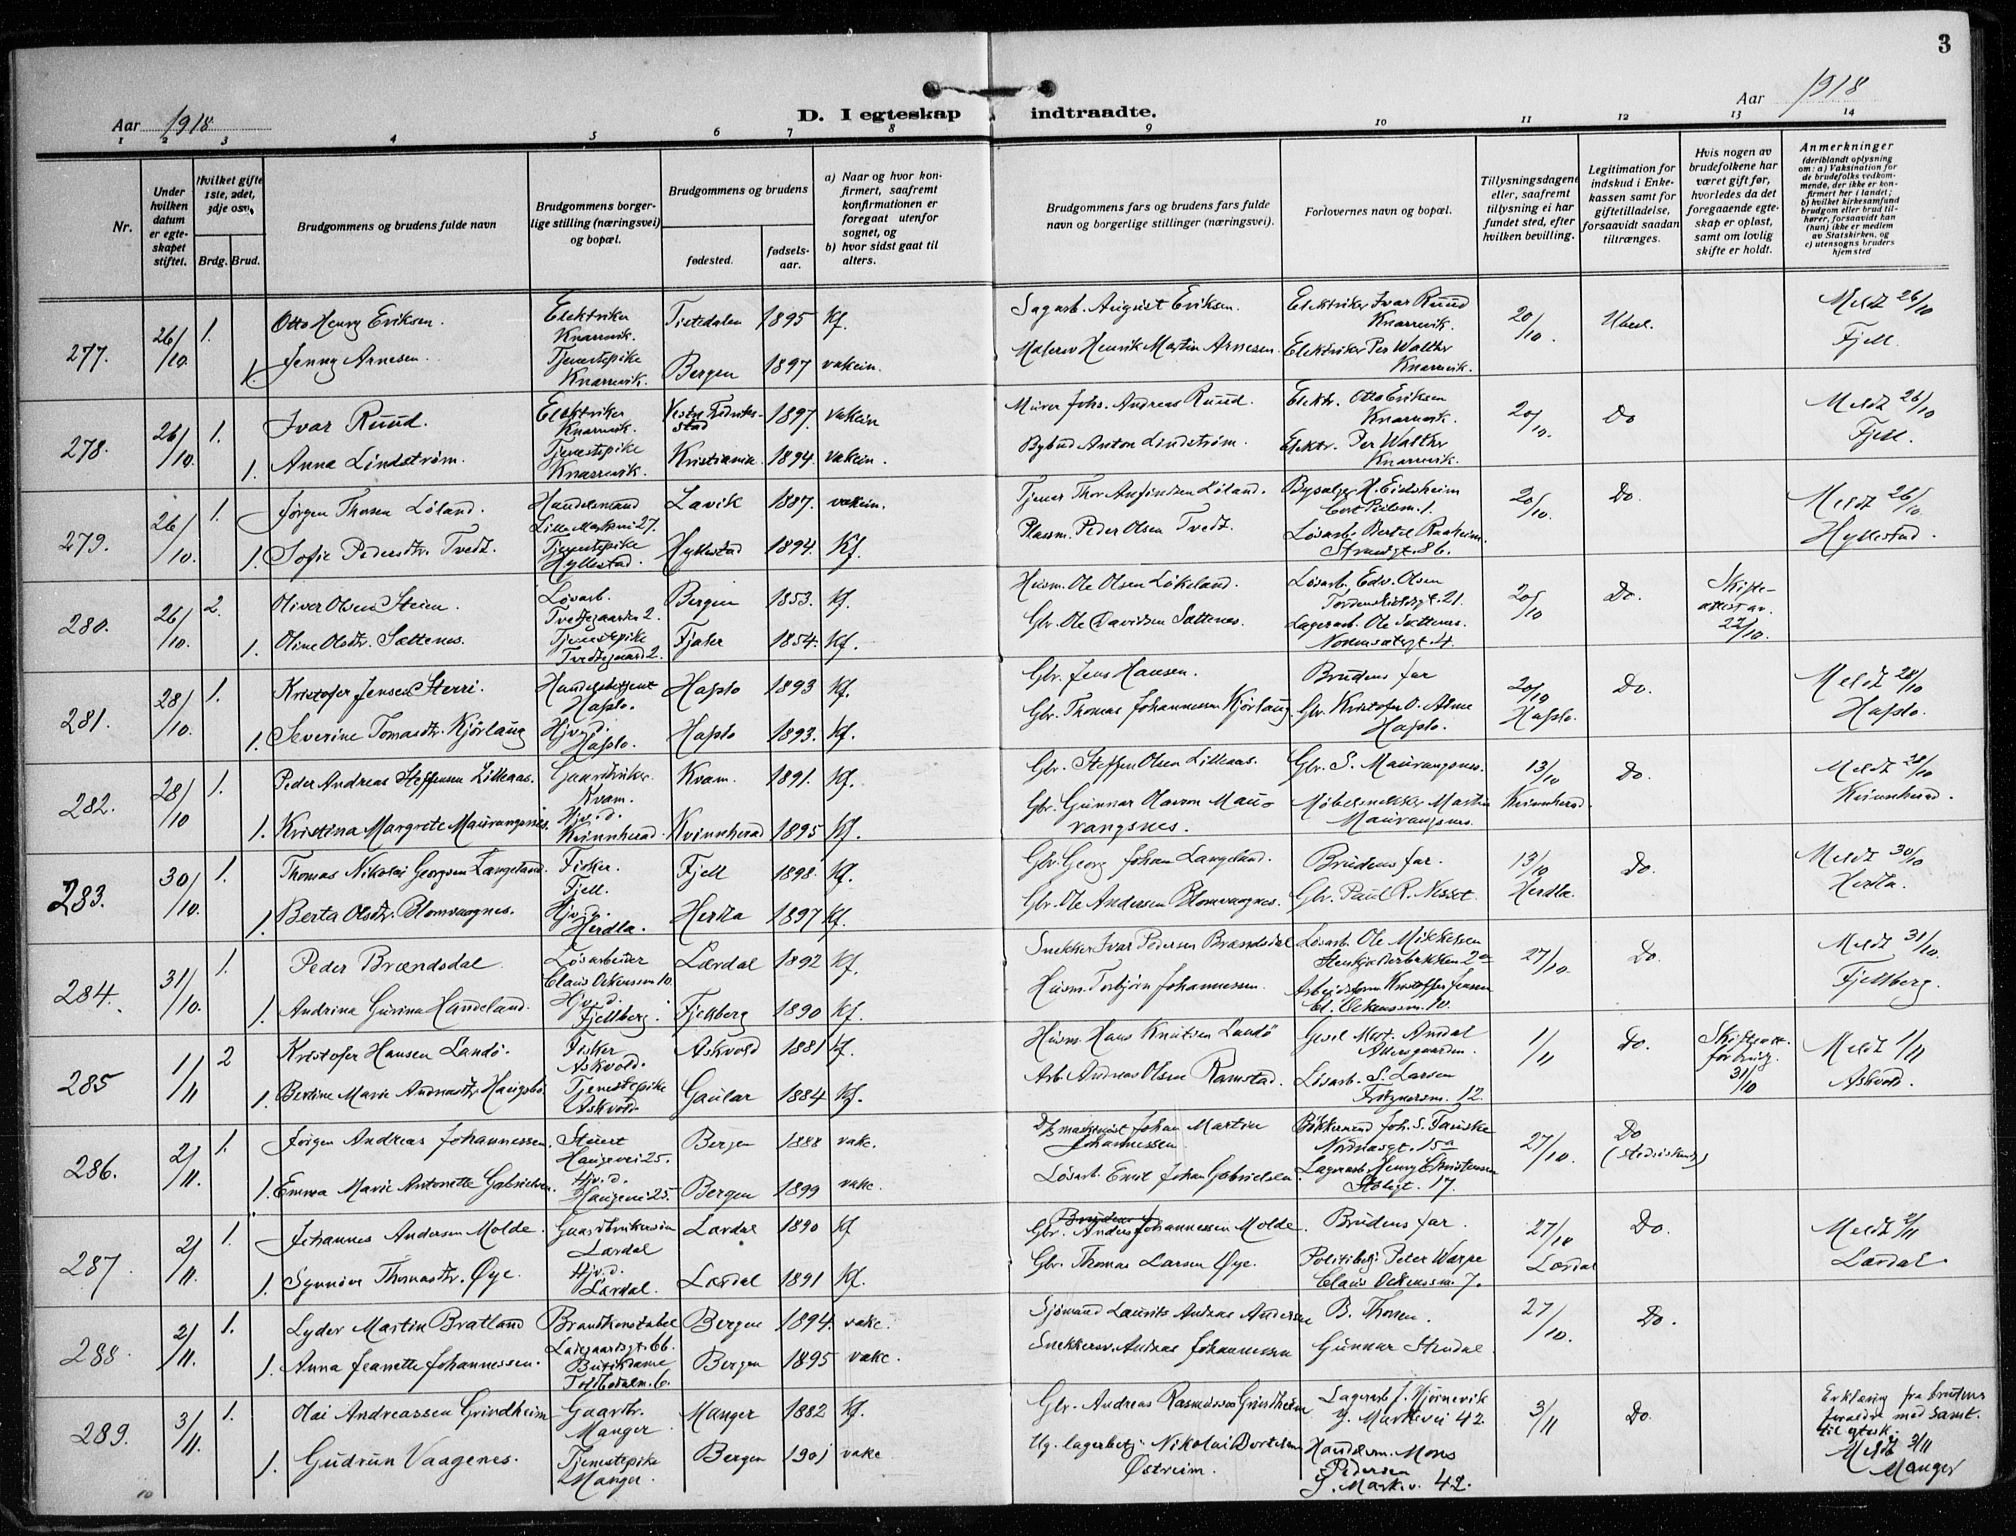 3
Aar 1918
D. I egteskap indtraadte.
Aar 1918
1 2 3 4 5 6 7 8 9 10 11 12 13 14
Nr.
Under hvilken datum er egteskapet stiftet.
Hvilket gifte 1ste, 2det, 3dje osv.
Brdg. Brud.
Brudgommens og brudens fulde navn
Brudgommens borgerlige stilling (næringsvei) og bopæl.
Brudgommens og brudens
fødested.
fødselsaar.
a) Naar og hvor konfirmert, saafremt konfirmationen er foregaat utenfor sognet, og
b) hvor sidst gaat til alters.
Brudgommens fars og brudens fars fulde navn og borgerlige stillinger (næringsvei).
Forlovernes navn og bopæl.
Tillysningsdagene eller, saafremt tillysning ei har fundet sted, efter hvilken bevilling.
Legitimation for indskud i Enkekassen samt for giftetilladelse, forsaavidt saadan tiltrænges.
Hvis nogen av brudefolkene har været gift før, hvorledes da det foregaaende egteskap er opløst, samt om lovlig skifte er holdt.
Anmerkninger
(deriblandt oplysning om: a) Vaksination for de brudefolks vedkommende, der ikke er konfirmert her i landet; b) hvilket kirkesamfund brudgom eller brud tilhører, forsaavidt han (hun) ikke er medlem av Statskirken, og c) utensogns bruders hjemsted
277. 26/10. 1. Otto Henry Eriksen. Elektriker Knarrevik. Tistedalen 1895 Kf. Sagarb. August Eriksen. Elektriker Ivar Ruud Knarrevik. 20/10. Ubesl. Meldt 26/10 Fjell.
1. Jenny Arnesen. Tjenestepike Knarrevik. Bergen 1897 vakcin. Malersv Henrik Martin Arnesen. Elektriker Per Walther Knarrevik.
278. 26/10. 1. Ivar Ruud. Elektriker Knarrevik. Vestre Fredrikstad 1897. vakcin Murer Johs. Andreas Ruud. Elektr. Otto Eriksen Knarrevik. 20/10. Do Meldt 26/10 Fjell.
1. Anna Lindstrøm. Tjenestepike Knarrevik. Kristiania. 1894. vakcin. Bybud Anton Lindstrøm. Elektr. Per Walther Knarrevik.
279. 26/10. 1. Jørgen Thorsen Løland. Handelsmand Lille Markevei 27. Lavik 1887. vakcin. Tjener Thor Anfindsen Løland. Bysælger H. Eidsheim 20/10. Do. Meldt 26/10. Hyllestad.
1. Sofie Pedersdtr. Tvedt. Tjenestepike Hyllestad. Hyllestad 1894. Kf. Plassm. Peder Olsen Tvedt. Løsarb. Bertel Raaheim. Strandgt. 86.
280. 26/10. 2. Oliver Olsen Steim. Løsarb. Tvedtegaarden 2. Bergen 1853. Kf. Husm. Ole Olsen Løkeland. Løsarb. Edv. Olsen Tordenskjoldsgt. 21. 20/10 Do. Skifteattest av. 22/10.
1. Oline Olsdtr. Sættenes. Tjenestepike Tvedtegaard 2. Fjaler 1854. Kf. Gbr. Ole Davidsen Sættenes. Lagerarb. Ole Sættenes.
281. 28/10. 1. Kristofer Jensen Sterri. Handelsbetjent Hafslo. Hafslo 1893 Kf. Gbr. Jens Hansen. Brudens far 20/10 Hafslo. Do. Meldt 28/10 Hafslo.
1. Severine Tomasdtr. Kjørlaug Hjv. d. Hafslo. Hafslo 1893. Kf. Gbr. Thomas Johannessen Kjørlaug Gbr. Kristofer O. Alme Hafslo.
282. 28/10 1. Peder Andreas Steffensen Lilleaas. Gaardbruker. Kvam. Kvam. 1891. Kf. Gbr. Steffen Olsen Lilleaas. Gbr. S. Maurangsnes. 13/10 Kvinnherad Do. Meldt 28/10 Kvinnherad.
1. Kristina Margrete Maurangsnes. Hjv. d. Kvinnherad. Kvinnherad 1895 Kf. Gbr. Gunnar Olavson Maurangsnes. Møbelsnekker Martin Maurangsnes.
283. 30/10. 1. Thomas Nikolai Georgsen Langeland. Fisker. Fjell. Fjell 1898. Kf. Gbr. Georg Johan Langeland. Brudens far. 13/10 Herdla. Do. Meldt 30/10 Herdla.
1. Berta Olsdtr. Blomvaagnes. Hjv. d. Herdla. Herdla 1897 Kf. Gbr. Ole Andersen Blomvaagnes. Gbr. Paul R. Nesset.
284. 31/10. 1. Peder Brændsdal Løsarbeider Claus Ockenssm 10. Lærdal 1892 Kf. Snekker Ivar Pedersen Brændsdal Løsarb. Ole Mikkelsen 27/10. Do. Meldt 31/10. Fjellberg.
1. Andrina Gurina Handeland. Hjv. d. Fjellberg. Fjellberg 1890 Kf. Husm. Torbjørn Johannessen. Arbeidsform Kristoffer Jensen Cl. Ockenssm. 10.
285 1/11 2 Kristofer Hansen Landø. Fisker Askvold. Askvold 1881 Kf. Husm. Hans Knutsen Landø 1/11 Do. 31/10 Meldt 1/11 Askvold.
1. Bertine Marie Andreasdtr. Haugsbø. Tjenestepike Askvold. Gaular 1884 Kf. Arb. Andreas Olsen Ramstad. Løsarb. S. Larsen 12.
286. 2/11. 1. Jørgen Andreas Johannessen. Stuert Haugevei 25. Bergen 1888 vakc. Johan Martin Johannessen Nordnæsgt. 15a 27/10. Do
1. Emma Marie Antonette Gabrielsen. Hjv. d. Haugevei 25. Bergen 1899 vakc. Løsarb. Emil Johan Gabrielsen. Lagerarb. Henry Christensen 17.
287. 2/11. 1. Johannes Andersen Molde. Gaardbrukersøn Lærdal Lærdal 1890 Kf Gbr. Anders Johannessen Molde. Brudens far. 27/10 Lærdal Do. Meldt 2/11 Lærdal.
1. Synnøve Thomasdtr. Øye. Hjv. d. Lærdal. Lærdal 1891 Kf. Gbr. Thomas Larsen Øye. Politibetj. Peter Warpe Claus Ockenssm. 7.
288. 2/11. 1. Lyder Martin Bratland Brandkonstabel Ladegaardsgt. 66. Bergen 1894. vakc. Sjømand Laurits Andreas Andersen B. Thorsen. 27/10. Do.
1. Anna Jeanette Johannessen. Butikdame Toldbodalm. 6. Bergen 1895 vakc. Snekkersv. Andreas Johannessen Gunnar Stendal
289. 3/11. 1. Olai Andreassen Grindheim Gaardbr. Manger. Manger 1882 Kf. Gbr. Andreas Rasmussen Grindheim Lagerarb J. Hjørnevik Y. Markevei 42. 3/11 Do. Erklæring fra brudens forældre med samt. til egtesk. Meldt 3/11 Manger
1. Gudrun Vaagenes. Tjenestepike Manger. Bergen 1901 vakc Ug. lagerbetj. Nikolai Bertelsen Østreim. Handelsm. Mons Pedersen Y. Markev. 42.
10